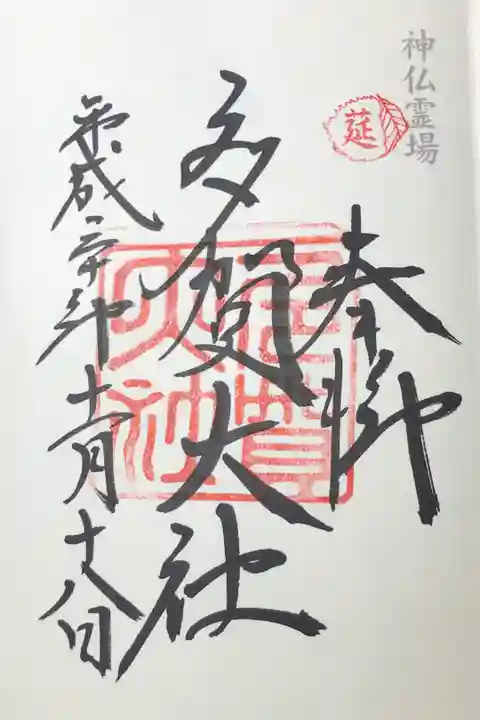 神仏霊場
莚
奉拝
多賀大社
平成二十年十一月十八日
多賀大社